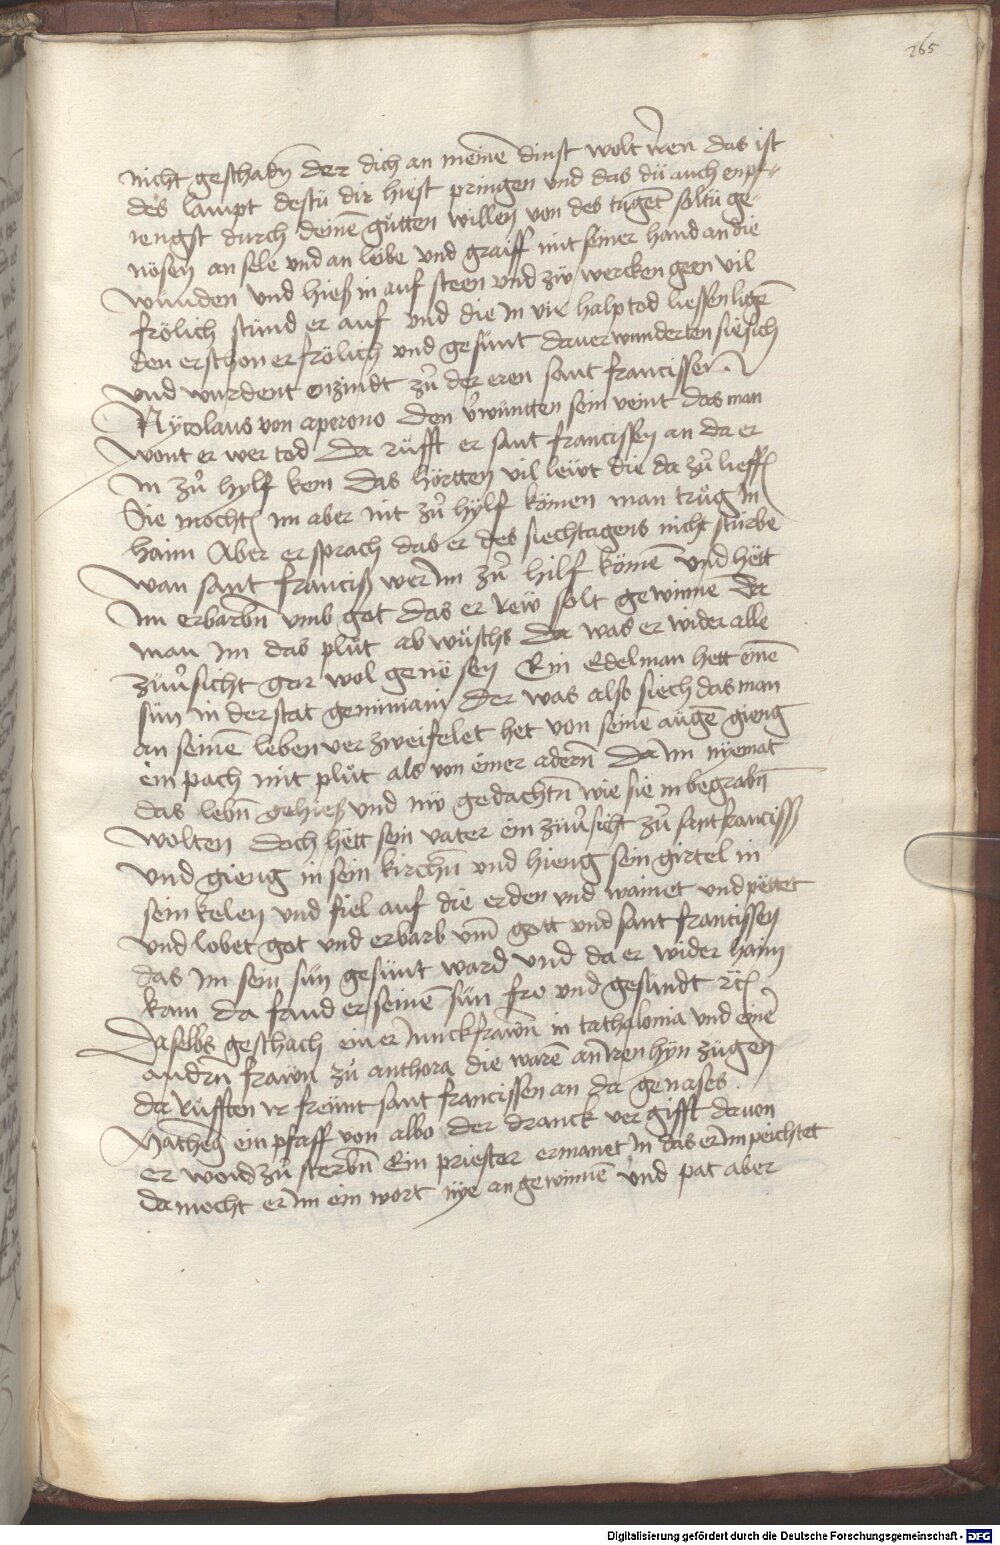 265
nicht geschahñ der dich an meinē dinst wolt irren das ist
des lampt destu dir hiest pringen vnd das dü auch enpf-
iengst durch deinē gütten willen von des tugēt soltü ge-
nösen an sele vnd an leibe vnd graiff mit seiner hand an die
wunden vnd hieß in auf steen vnd zü wercken geen vil
frölich stünd er auf vnd die in vie halp tod liessen ligē
den erschon er frölich vnd gesünt da verwunderten sie sich
vnd wurdent enzindt zů der eren sant francissen
Nycolaus von aperono den v̊wüntten sein veint das man
wont er wer tod Da rüfft er sant francissen an da er
im zů hylf kem das hörtten vil lewt die da zů lieffen
Sie mochten im aber nit zů hylf kömen man trüg in
haim Aber er sprach das er des siechtagens nicht stürbe
wan sant franciß wer im zů hilf kömē vnd hett
im erbarbñ vmb got das er rew solt gewinnē Da
man im das plüt ab wüschs Da was er wider alle
züuersicht gar wol genësen Ein Edelman hett einē
sün in der stat geminiani der was also siech das man
an seinē leben verzweifelet het von seinē augē gieng
ein pach mit plüt als von einer adern̄ Da im nyemat
das lebñ gehieß vnd nw gedachtn̄ wie sie in begrabñ
wolten doch hett sein vater ein züuersicht zů sant franciß
vnd gieng in sein kirchn̄ vnd hieng sein girtel in
sein kelen vnd fiel auf die erden vnd wainet vnd pettet
vnd lobet got vnd erbarb vm̄ gott vnd sant francissen
das im sein sün gesünt ward vnd da er wider haim
kam da fand er seinē sün fro vnd gesundt
Daselbs geschach einer iunckfrawn̄ in tathalonia vnd einē
andrn̄ frawn̄ zů anthora die warē an iren hyn zügen
da rüfften ir freünt sant francissen an da genases
Matheus ein pfaff von albo der dranck vergifft davon
er word zů sterbñ Ein priester ermanet in das er im peichtet
da mocht er im ein wort nye an gewinnē vnd pat aber
Digitalisierung gefördert durch die Deutsche Forschungsgemeinschaft - DFG